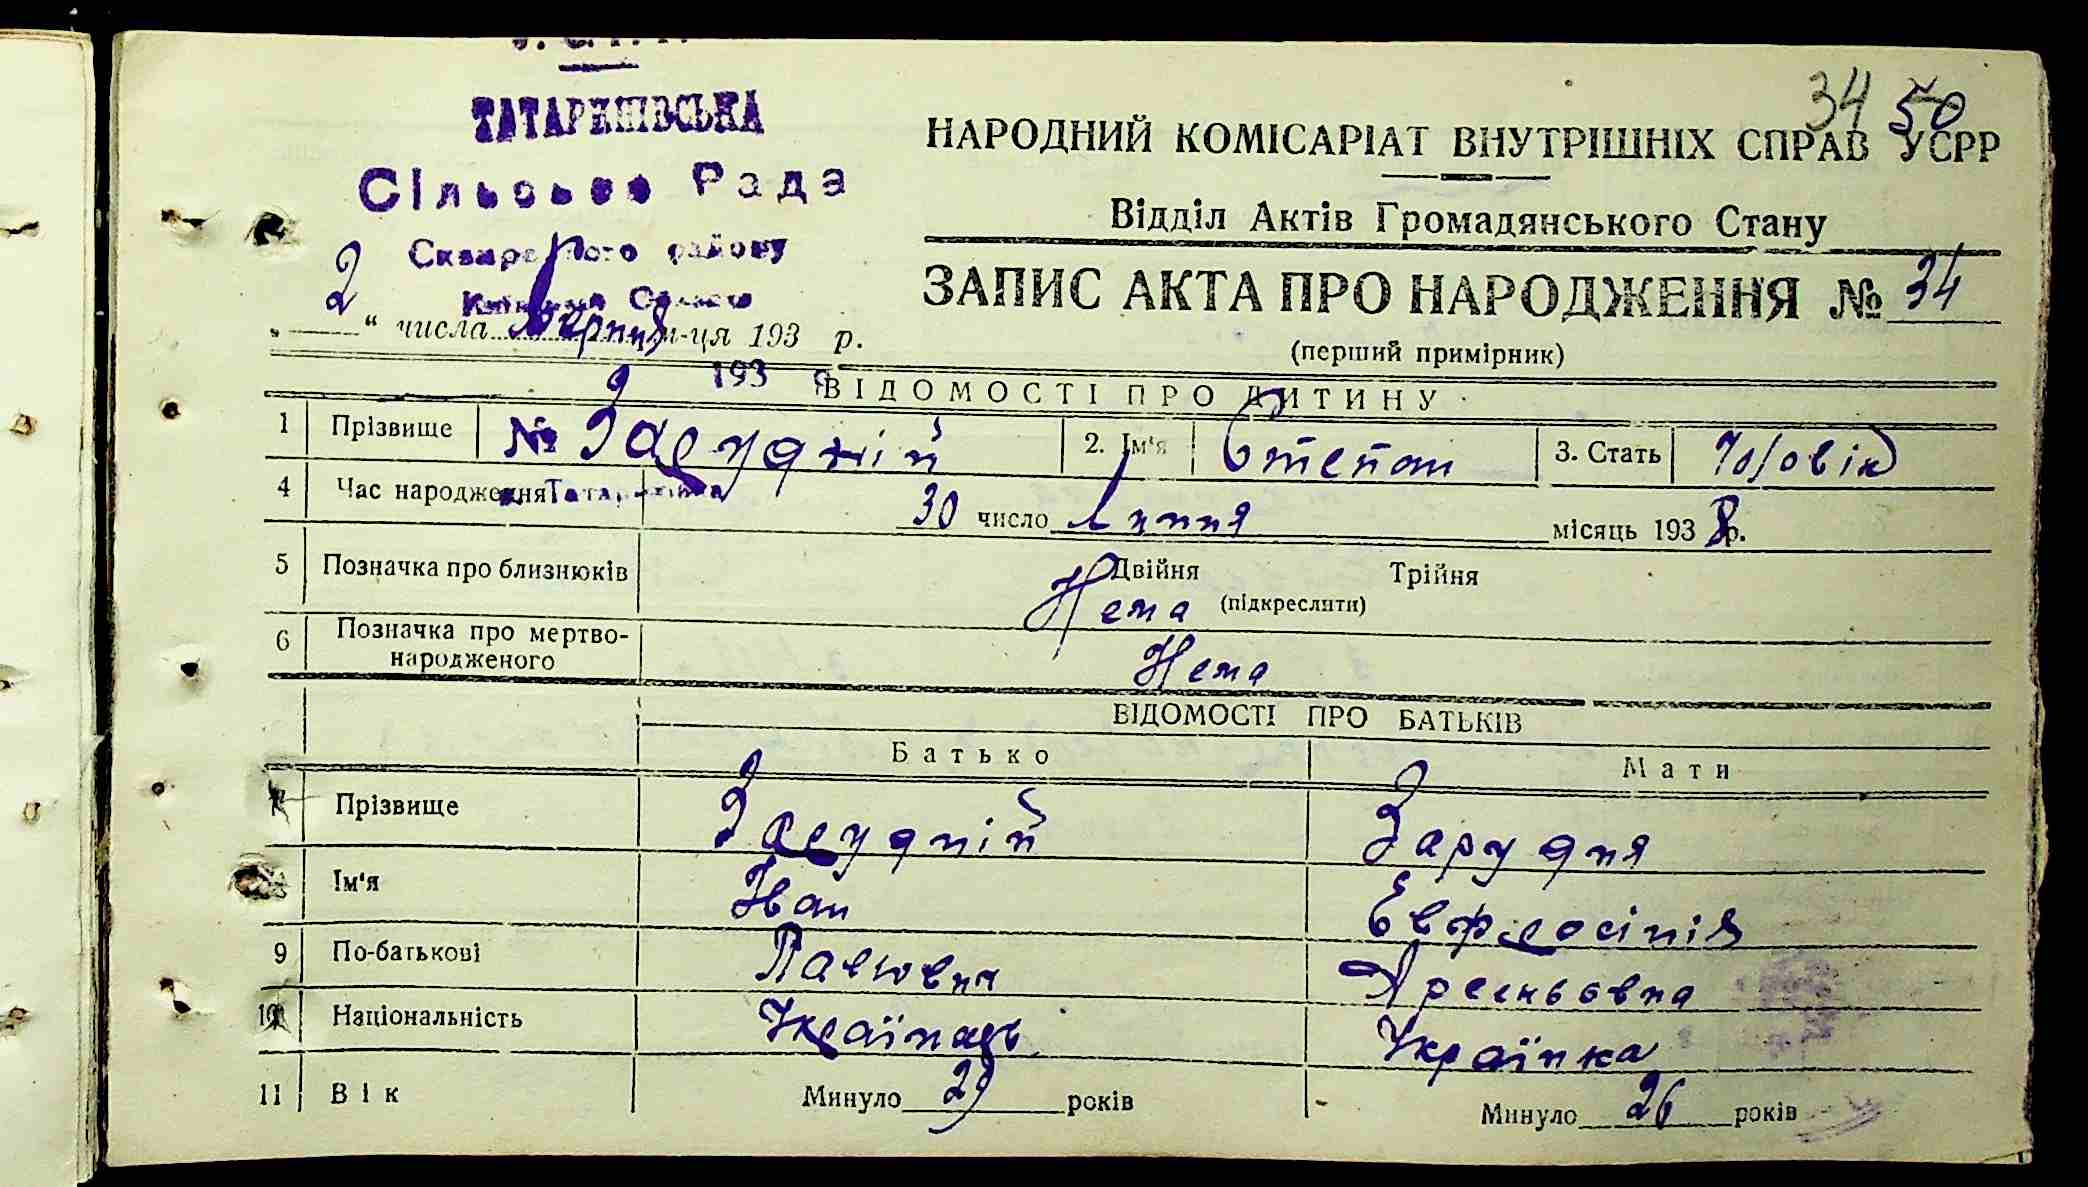 34 50
ТАТАРИНІВСЬКА
Сільська Рада
Сквирського району
Київська Область
НАРОДНИЙ КОМІСАРІАТ ВНУТРІШНІХ СПРАВ УСРР
Відділ Актів Громадянського Стану
ЗАПИС АКТА ПРО НАРОДЖЕННЯ № 34
(перший примірник)
„ 2 “ числа серпня м-ця 193 р.
193
ВІДОМОСТІ ПРО ДИТИНУ
1 Прізвище № Зарудній 2. Ім'я Степан 3. Стать Чоловік
4 Час народження 30 число липня місяць 1938 р.
5 Позначка про близнюків Двійня Трійня
Нема (підкреслити)
6 Позначка про мертво-
народженого Нема
ВІДОМОСТІ ПРО БАТЬКІВ
Батько Мати
7 Прізвище Зарудній Зарудня
Ім'я Іван Евфросінія
9 По-батькові Павлович Арсеньовна
10 Національність Українець Українка
11 Вік Минуло 29 років Минуло 26 років